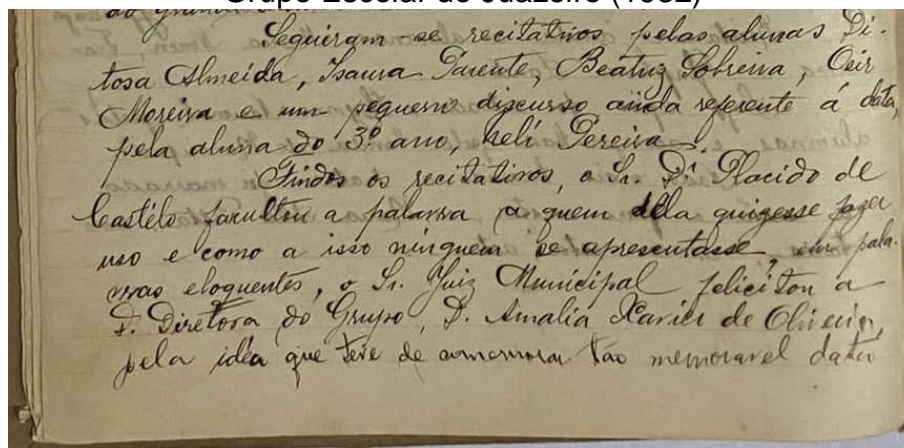 Grupo Escolar de Juazeiro (1932)
do grand
Seguiram-se recitativos pelas alunas Di-
tosa Almeida, Isaura Parente, Beatriz Sobreira, Oeir
Moreira e um pequeno discurso ainda referente á data,
pela aluna do 3º ano, Neli Pereira.
Findos os recitativos, o Sr. Dr. Placido de
Castélo facultou a palavra a quem déla quizesse fazer
uso e como a isso ninguem se apresentasse, em pala-
vras eloquentes, o Sr. Juiz Municipal felicitou a
D. Diretora do Grupo, D. Amalia Xavier de Oliveira,
pela idéa que teve de comemorar tão memoravel data